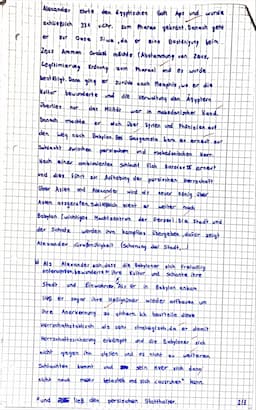 Alexander ehrte den ägyptischen Gott Apis und wurde
schließlich 331 v.Chr. zum Pharao gekrönt. Danach geht
er zur Oase Siwa, da er eine Bestätigung beim
Zeus Ammon Orakel möchte (Abstammung von Zeus,
Legitimierung Ordnung zum Pharao) und es wurde
bestätigt. Dann ging er zurück nach Memphis, wo er die
Kultur bewunderte und die Verwaltung den Ägyptern
überlies nur das Militär war in makedonischer Hand.
Danach machte er sich über Syrien und Phönizien auf
den Weg nach Babylon. Bei Gaugamela kam es erneut zur
Schlacht zwischen persischem und makedonischem Herr.
Nach einer ambivalenten Schlacht flieht Dareios III erneut
und dies führt zur Aufhebung der persischen Herrschaft
über Asien und Alexander wird als neuer König über
Asien ausgerufen. Schließlich zieht er weiter nach
Babylon (wichtiges Machtzentrum der Perser). Die Stadt und
der Schatz werden ihm kampflos übergeben, dafür zeigt
Alexander Großmütigkeit (Schonung der Stadt,
Als Alexander sah, dass die Babylonier sich freiwillig
unterwarfen, bewunderte er ihre Kultur und schonte ihre
Stadt und Einwohner. Als er in Babylon ankam
ließ er sogar ihre Heiligtümer wieder aufbauen um
ihre Anerkennung zu sichern. Ich beurteile diese
Herrschaftstaktik als sehr strategisch, da er damit
Herrschaftssicherung erkämpft und die Babylonier sich
nicht gegen ihn stellen und es nicht zu weiteren
Schlachten kommt und sein Heer sich dann
nicht noch mehr belasten und sich "ausruhen" kann.
und ließ den persischen Statthalter.